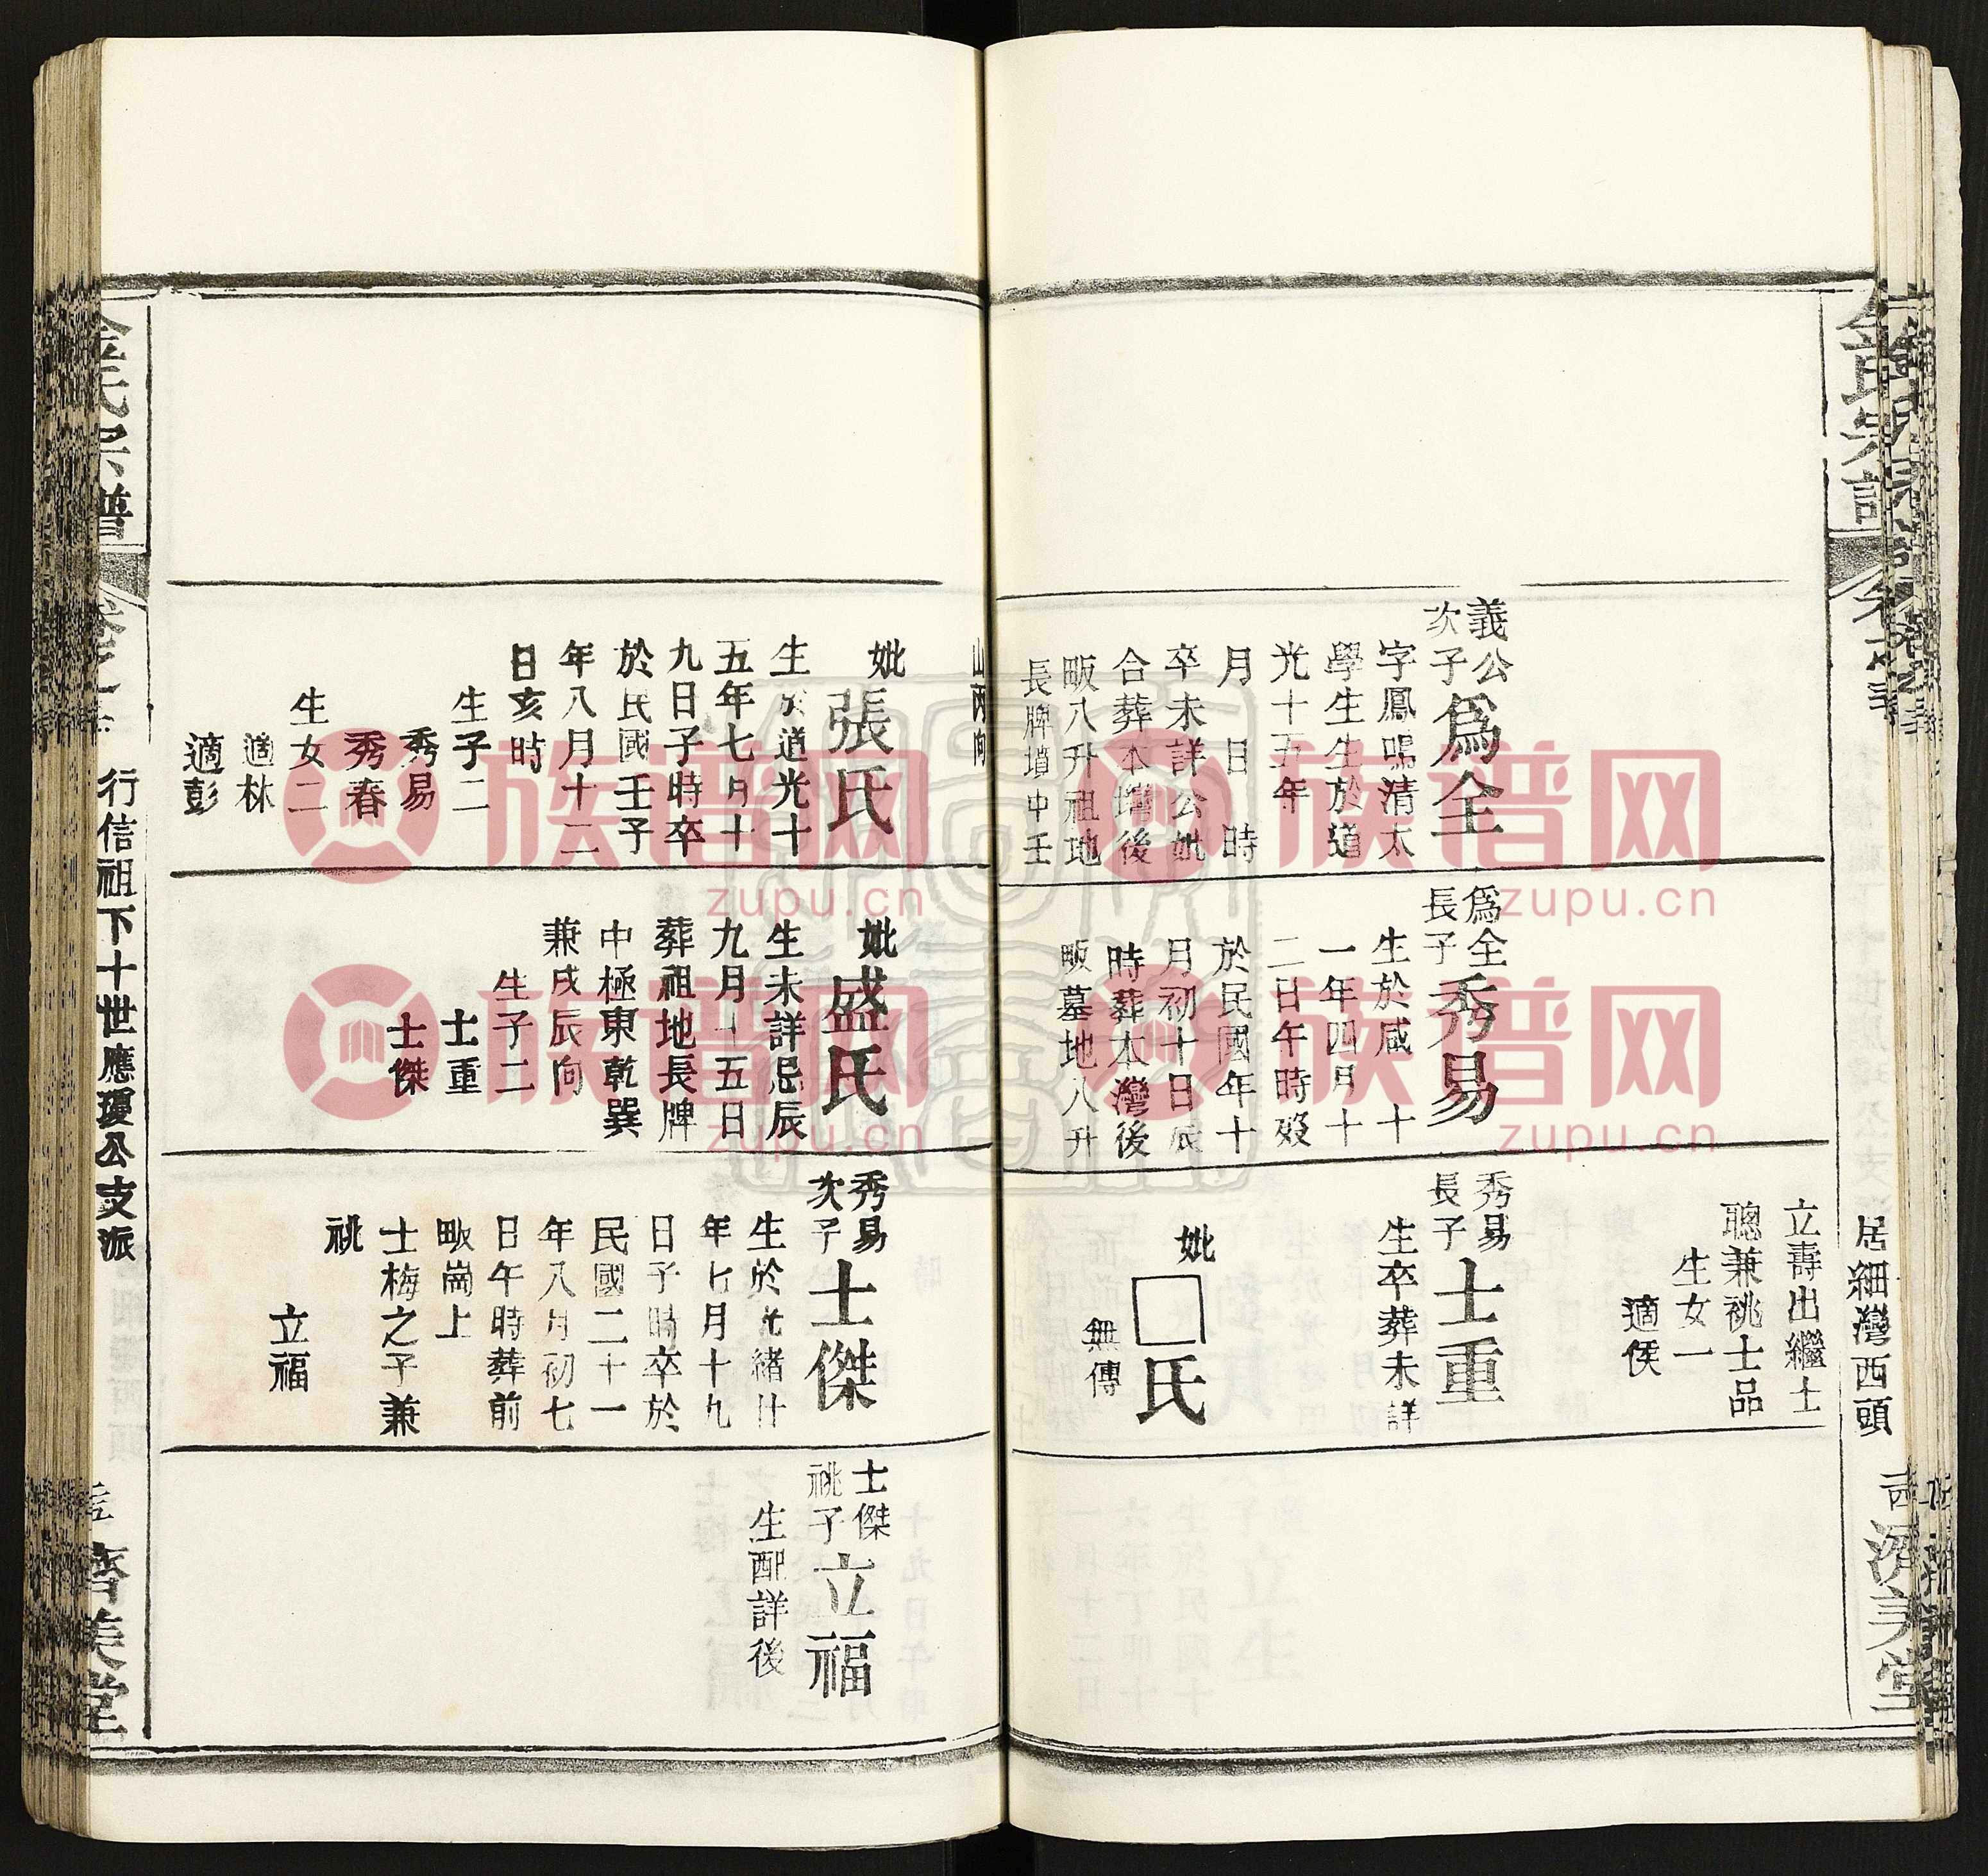 居細灣西頭
義公
次子
爲全
字鳳鳴清太
學生生於道
光十五年
月 日 時
卒未詳公妣
合葬本灣後
畈八升祖地
長牌墳中壬
山丙向
妣
張氏
生於道光十
五年七月十
九日子時卒
於民國壬子
年八月十二
日亥時
生子二
秀易
秀春
生女二
適林
適彭
爲全
長子
秀易
生於咸 十
一年四月十
二日午時歿
於民國年十
月初十日辰
時葬本灣後
畈墓地八升
妣
盛氏
生未詳忌辰
九月十五日
葬祖地長牌
中極東乾巽
兼戌辰向
生子二
士重
士傑
立壽出繼士
聰兼祧士品
生女一
適侯
秀易
長子
士重
生卒葬未詳
妣
□氏
無傳
秀易
次子
士傑
生於光緒廿
年七月十九
日子時卒於
民國二十一
年八月初七
日午時葬前
畈崗上
士梅之子兼
祧
立福
士傑
祧子
立福
生配詳後
金氏宗譜
行信祖下十世應瓊公支派
濟美堂
族谱网
zupu.cn
族谱网
zupu.cn
族谱网
zupu.cn
族谱网
zupu.cn